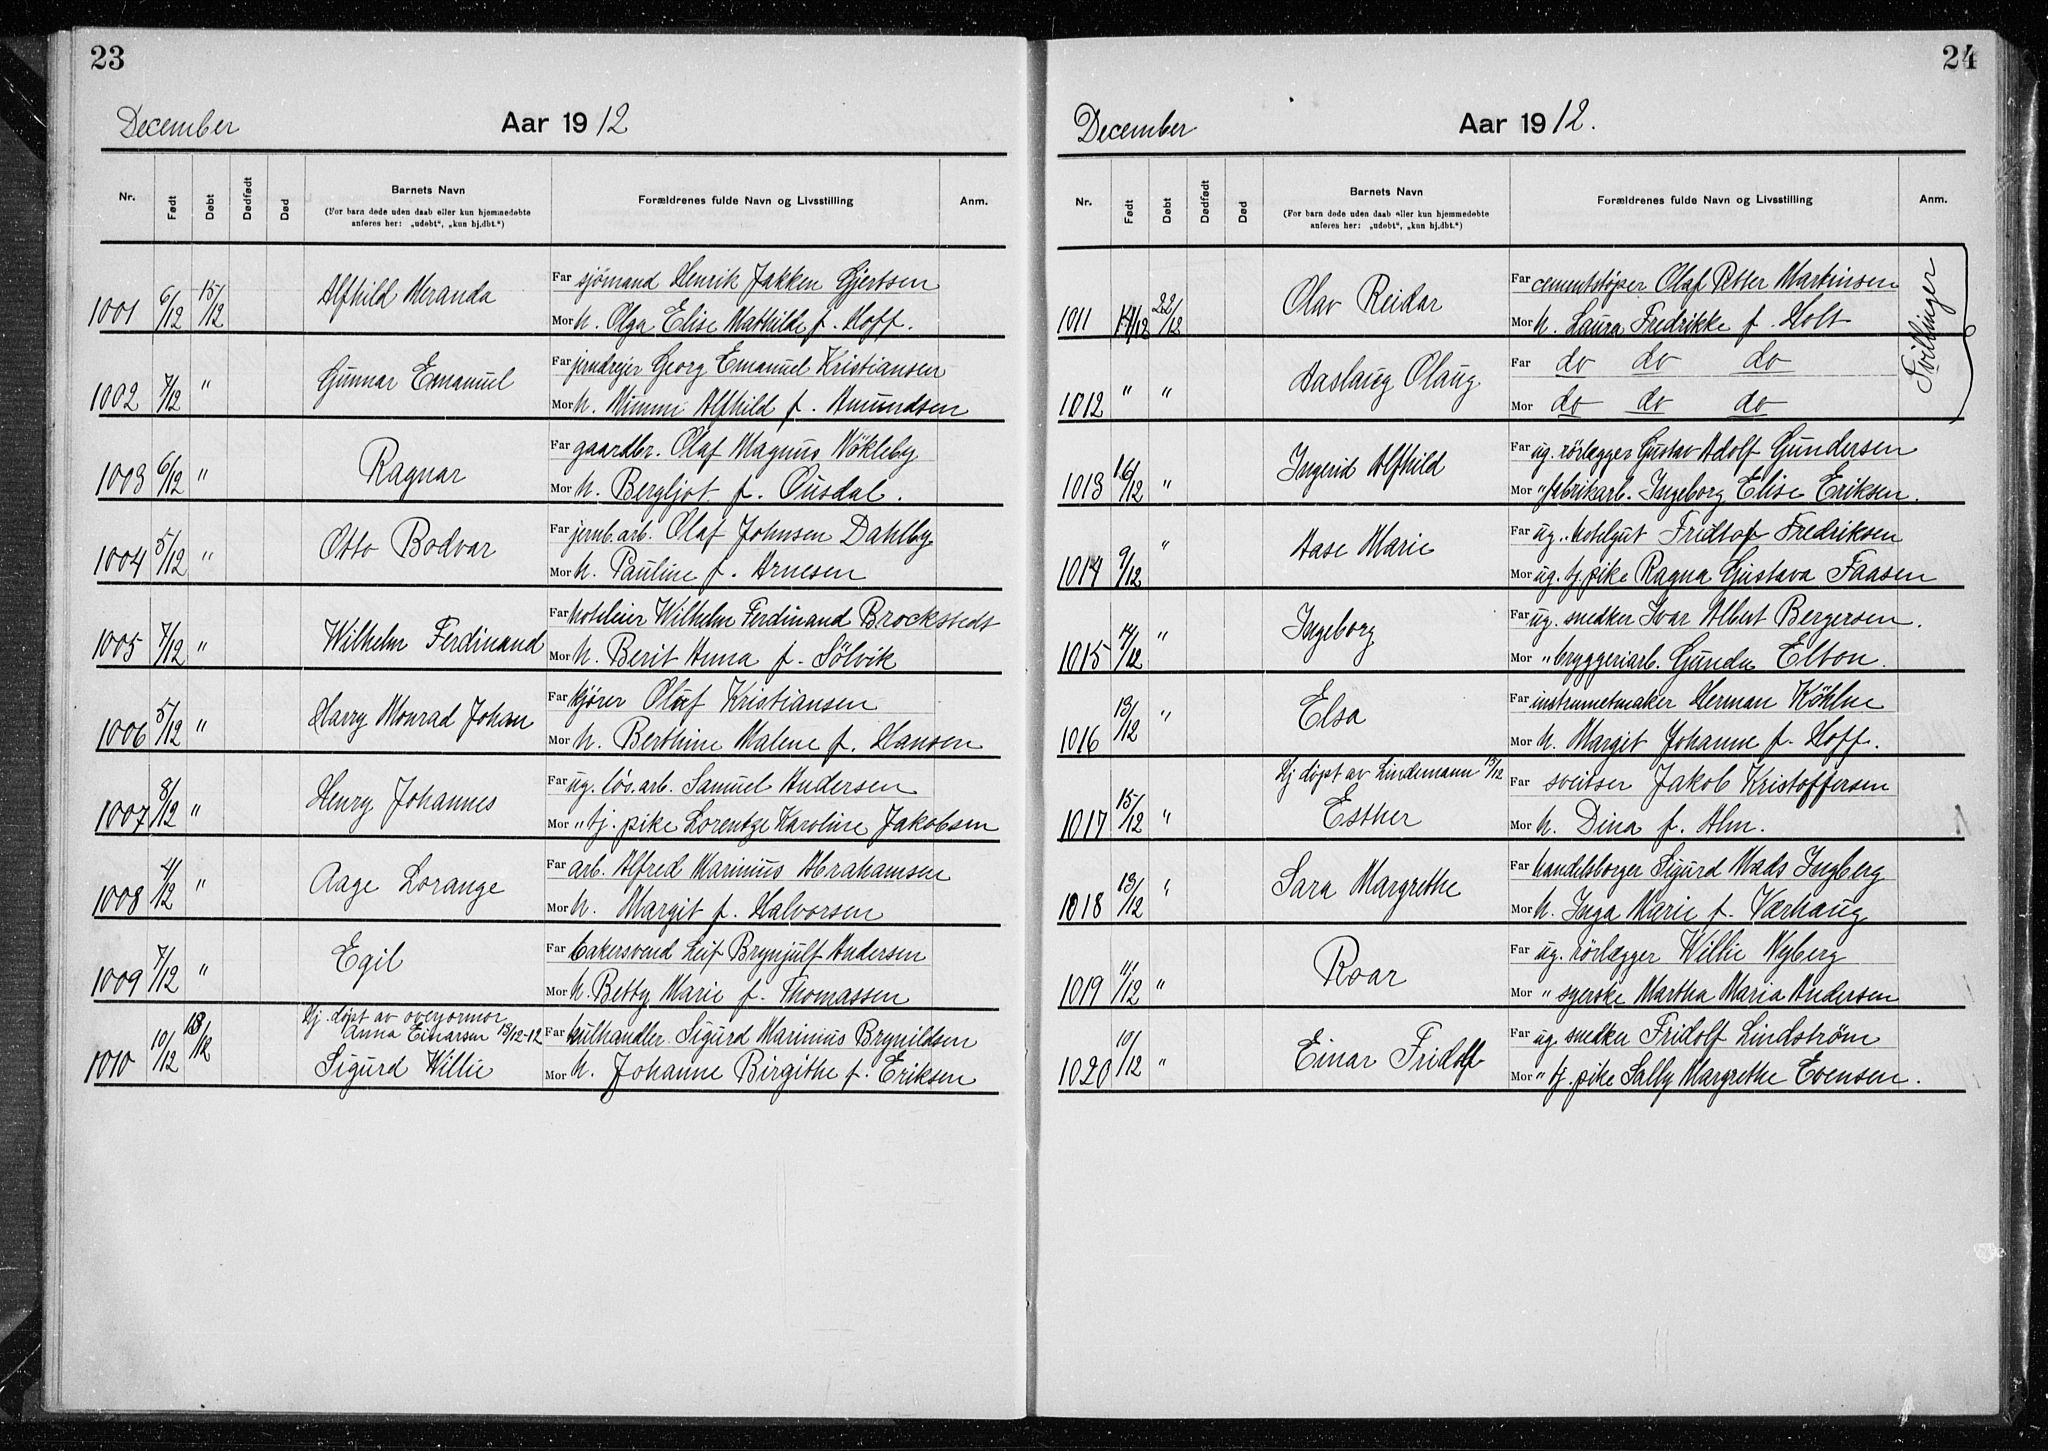 23
December Aar 1912
Nr. Født Døbt Dødfødt Død Barnets Navn Forældrenes fulde Navn og Livsstilling Anm.
(For barn døde uden daab eller kun hjemmedøbte
anføres her: „udøbt“, „kun hj.dbt.“)
1001 6/12 15/12 Alfhild Meranda Far sjömand Henrik Jakken Gjertsen
Mor h. Olga Elise Mathilde f. Hoff.
1002 7/12 " Gunnar Emanuel Far jerndrejer Georg Emanuel Kristiansen
Mor h. Mimmi Alfhild f. Amundsen
1003 6/12 " Ragnar Far gaardbr. Olaf Magnus Nökleby
Mor h. Bergljot f. Ousdal.
1004 5/12 " Otto Bodvar Far jernb.arb. Olaf Johnsen Dahlby
Mor h. Pauline f. Arnesen
1005 7/12 " Wilhelm Ferdinand Far hoteleier Wilhelm Ferdinand Brockstedt
Mor h. Berit Anna f. Sölvik
1006 5/12 " Harry Monrad Johan Far kjörer Oluf Kristiansen
Mor h. Berthine Malene f. Hansen
1007 8/12 " Henry Johannes Far ug. lös.arb. Samuel Andersen
Mor " tj. pike Lorentze Karoline Jakobsen
1008 4/12 " Aage Lorange Far arb. Alfred Marinius Abrahamsen
Mor h. Margit f. Halvorsen
1009 7/12 " Egil Far bakersvend Leif Brynjulf Andersen
Mor h. Betty Marie f. Thomassen
Hj. döpt av overjormor
Anna Einarsen 13/12-12
1010 10/12 13/12 Sigurd Willie Far kulhandler Sigurd Marinius Brynildsen
Mor h. Johanne Birgithe f. Eriksen
24
December Aar 1912.
Nr. Født Døbt Dødfødt Død Barnets Navn Forældrenes fulde Navn og Livsstilling Anm.
(For barn døde uden daab eller kun hjemmedøbte
anføres her: „udøbt“, „kun hj.dbt.“)
1011 14/12 22/12 Olav Reidar Far cementstøper Olaf Petter Martinsen
Mor h. Laura Fredrikke f. Holt
Tvillinger
1012 " " Aaslaug Olaug Far do do do
Mor do do do
1013 16/12 " Ingerid Alfhild Far ug. rörlægger Gustav Adolf Gundersen
Mor " fabrikarb. Ingeborg Elise Eriksen.
1014 9/12 " Aase Marie Far ug. hotelgut Fridtof Fredriksen
Mor ug. tj. pike Ragna Gustava Faasen
1015 14/12 " Ingeborg Far ug. snedker Ivar Albert Bergersen.
Mor " bryggeriarb. Gunda Elton.
1016 13/12 " Elsa Far instrumetmaker Herman Köhlne
Mor h. Margit Johanne f. Hoff.
Hj döpt av Lindemann 15/12
1017 15/12 " Esther Far sveitser Jakob Kristoffersen
Mor h. Dina f. Alm.
1018 13/12 " Sara Margrethe Far handelsborger Sigurd Mads Ingberg
Mor h. Inga Marie f. Værhaug
1019 11/12 " Roar Far ug. rörlægger Willie Nyberg
Mor " syerske Martha Maria Andersen
1020 10/12 " Einar Fridolf Far ug. snedker Fridolf Lindström
Mor " tj. pike Sally Margrethe Evensen.